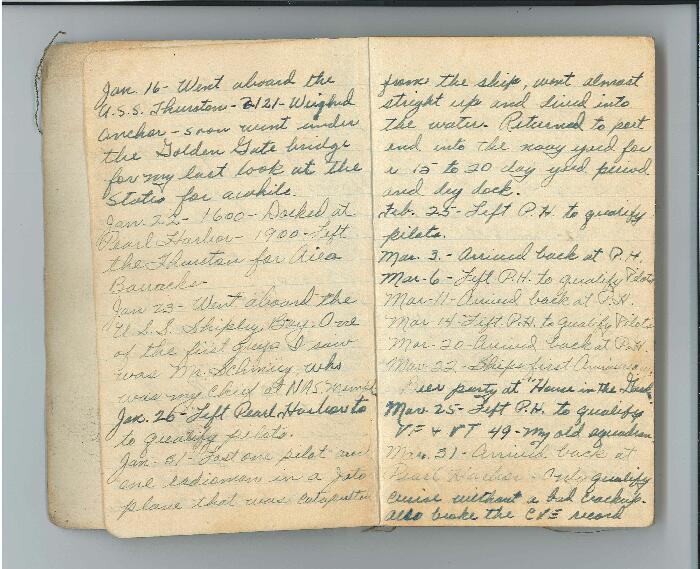 Jan. 16 - Went aboard the
U.S.S. Thurston - 2121 - Weighed
anchor - soon went under
the Golden Gate bridge
for my last look at the
States for awhile.
Jan. 22 - 1600 - Docked at
Pearl Harbor - 1900 - Left
the Thurston for Aiea
Barracks.
Jan 23 - Went aboard the
U.S.S. Shipley Bay. One
of the first guys I saw
was Mr. who
was my Chief at NAS
Jan. 26 - Left Pearl Harbor to
to qualify pilots.
Jan. 31 - Lost one pilot and
one radioman in a
plane that was catapulted
from the ship, went almost
stright up and dived into
the water. Returned to port
and into the navy yard for
a 15 to 20 day yard period
and dry dock.
Feb. 25 - Left P.H. to quaify
pilots.
Mar. 3. - Arrived back at P.H.
Mar - 6 - Left P.H. to qualify Pilots
Mar - 11 - Arrived back at P.H.
Mar 14 - Left P.H. to qualify Pilots
Mar - 20 - Arrived back at P.H.
Mar - 22 - Ships first
Beer party at "House in the
Mar - 25 - Left P.H. to qualify
VF & VT 49 - my old squadron
Mar. 31 - Arrived back at
Pearl Harbor - Only qualify
cruise without a bad crackup.
also broke the CVE record